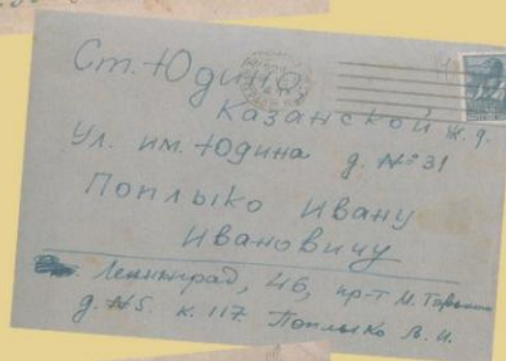 Ст. Юдино,
Казанской ж. д.
Ул. им. Юдина д. №31
Поплыко Ивану
Ивановичу
Ленинград, 46, пр-т М. Горького
д. №5. к. 117. Поплыко В. И.